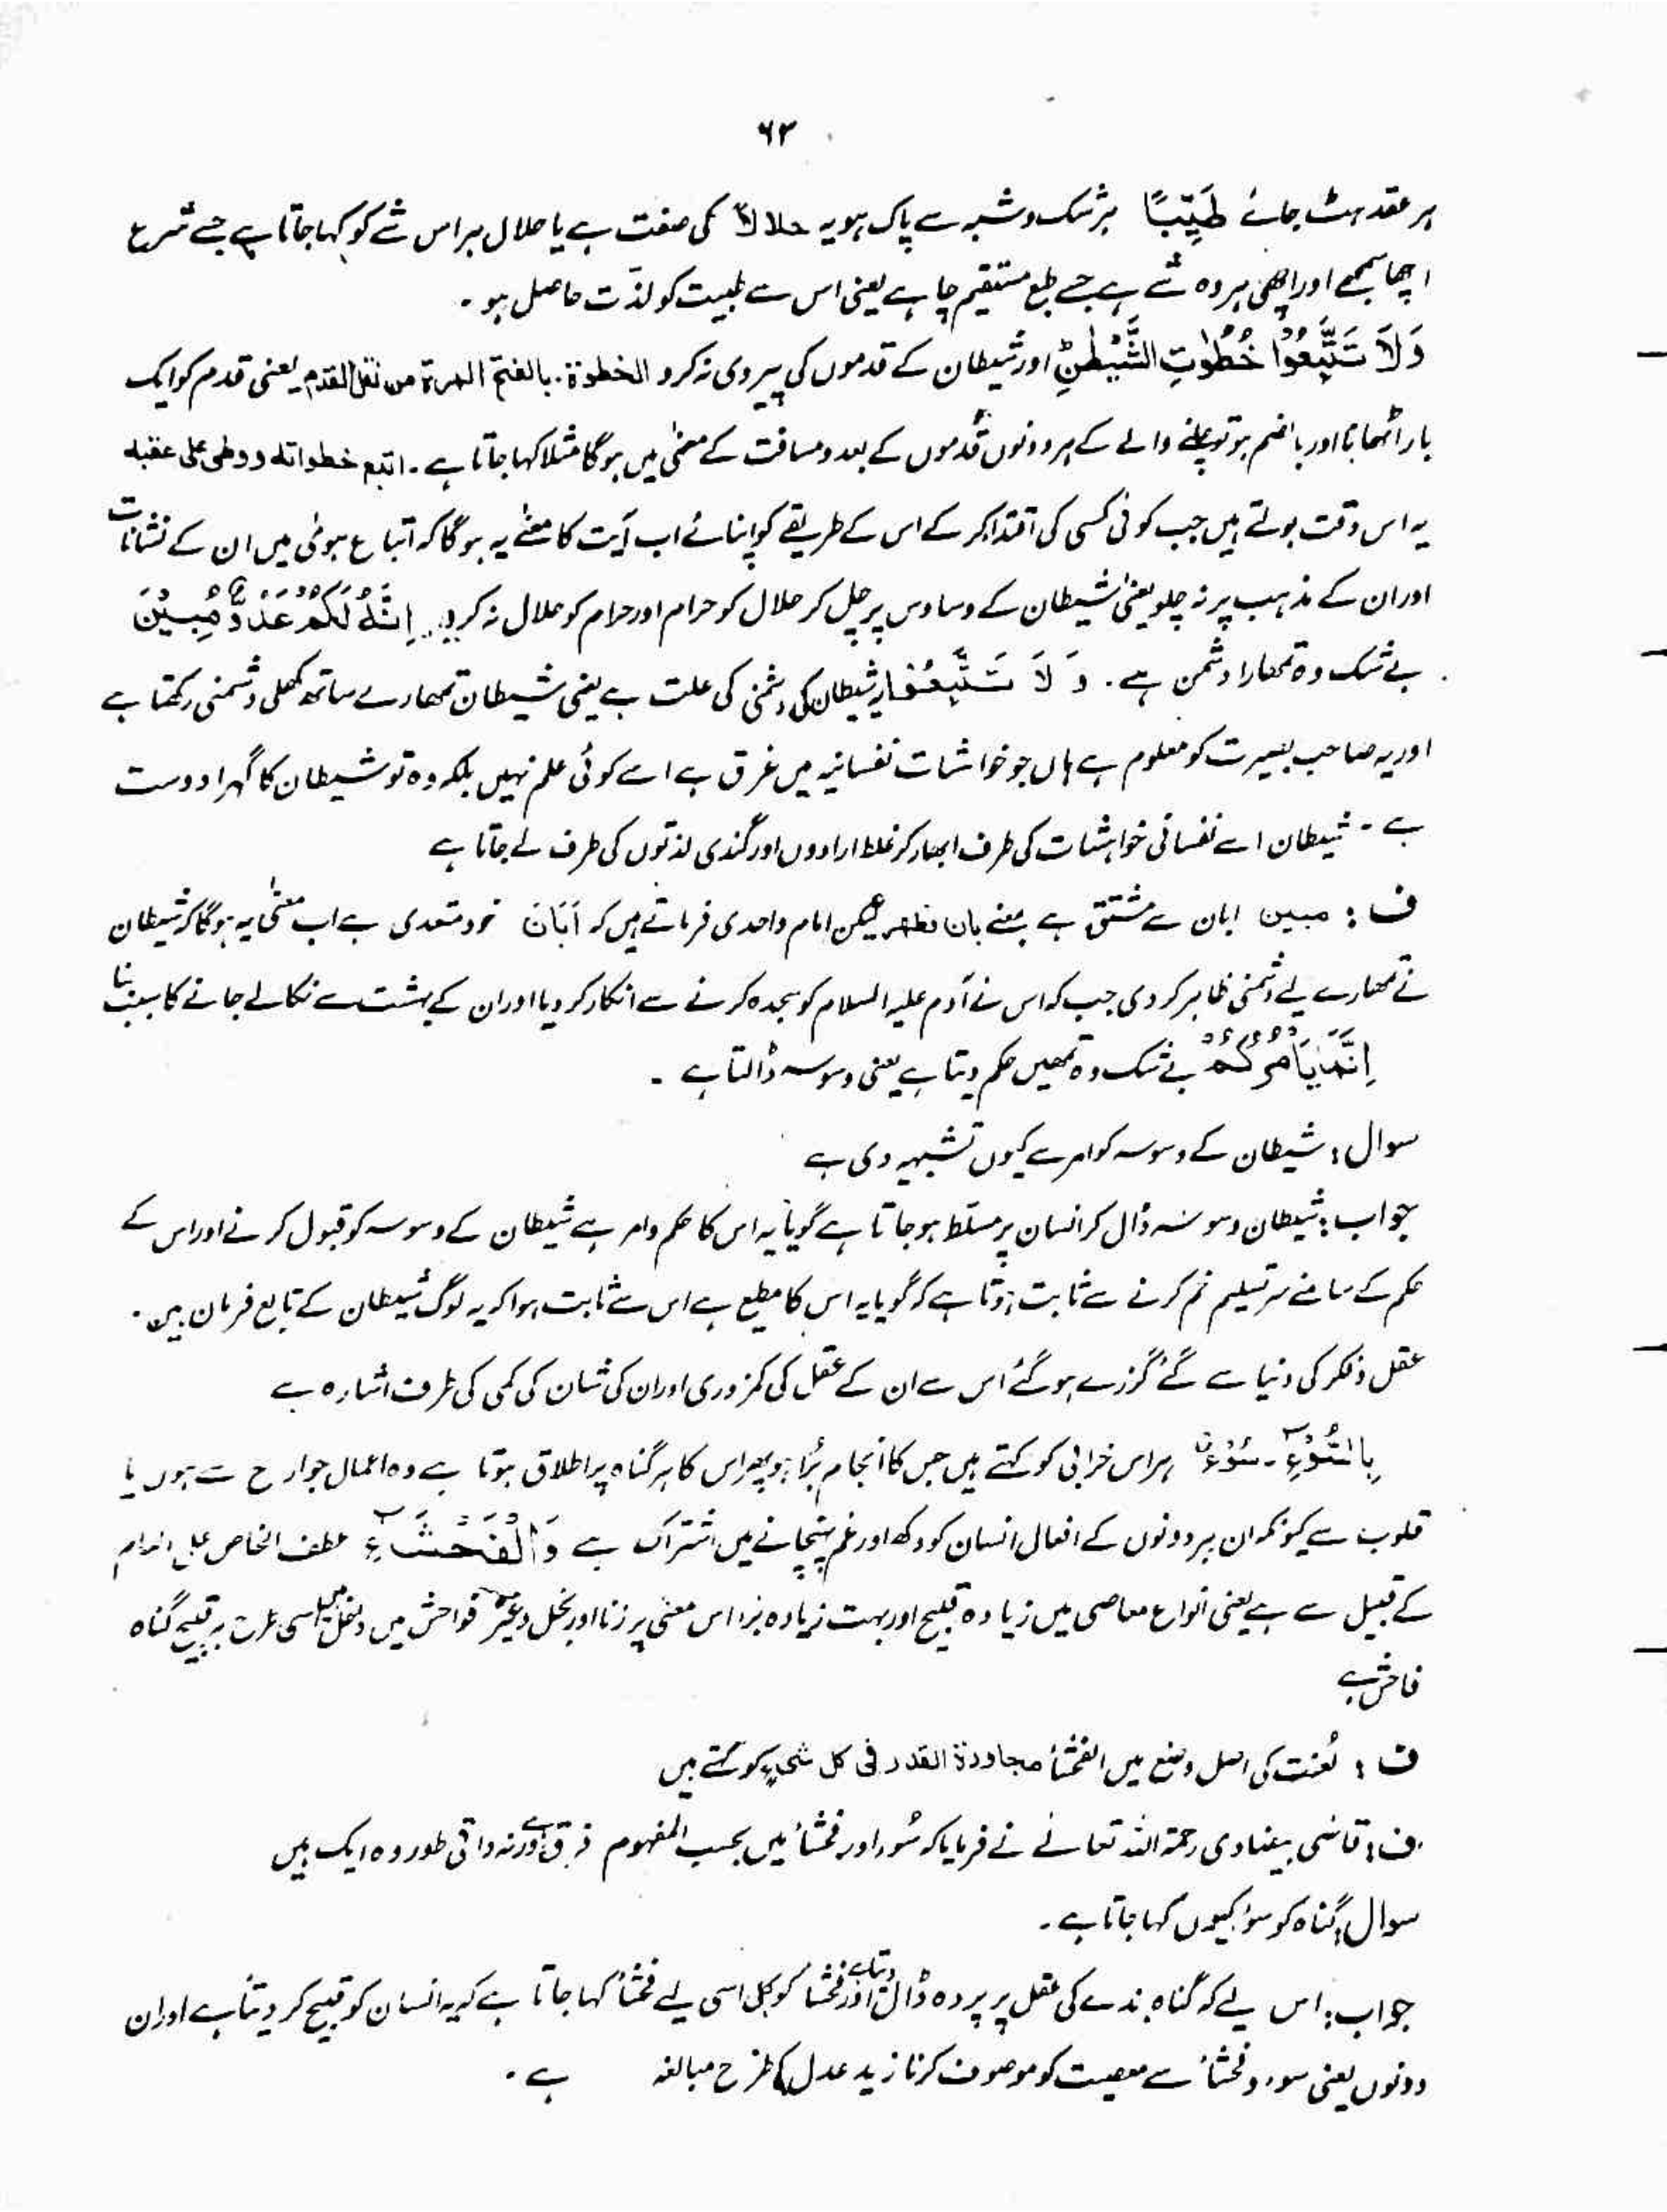 ۶۳
ہر عقد ہٹ جائے طَيِّبًا ہر شک و شبہ سے پاک ہو یہ حلالاً کی صفت ہے یا حلال ہر اس شے کو کہا جاتا ہے جسے شرع
اچھا سمجھے اور اچھی ہر وہ شے ہے جسے طبع مستقیم چاہے یعنی اس سے طبیت کو لذّت حاصل ہو ۔
وَلَا تَتَّبِعُوْا خُطُوٰتِ الشَّيْطٰنِ اور شیطان کے قدموں کی پیروی نہ کرو الخطوة ۔ بالفتح المرة من نقل القدم یعنی قدم کو ایک
بار اٹھانا اور بالضم ہو تو چلنے والے کے ہر دونوں قدموں کے بعد و مسافت کے معنیٰ میں ہوگا مثلاً کہا جاتا ہے ۔ اتبع خطواته ووطی علی عقبه
یہ اس وقت بولتے ہیں جب کوئی کسی کی اقتدا کر کے اس کے طریقے کو اپنائے اب آیت کا معنٰے یہ ہوگا کہ اتباع ہوٰی میں ان کے نشانات
اور ان کے مذہب پر نہ چلو یعنی شیطان کے وساوس پر چل کر حلال کو حرام اور حرام کو حلال نہ کرو ۔ اِنَّهٗ لَكُمْ عَدُوٌّ مُّبِيْنٌ
بے شک وہ تمھارا دشمن ہے ۔ وَ لَا تَتَّبِعُوْا یہ شیطان کی دشمنی کی علت ہے یعنی شیطان تمھارے ساتھ کھلی دشمنی رکھتا ہے
اور یہ صاحب بصیرت کو معلوم ہے ہاں جو خواشات نفسانیہ میں غرق ہے اسے کوئی علم نہیں بلکہ وہ تو شیطان کا گہرا دوست
ہے ۔ شیطان اسے نفسانی خواہشات کی طرف ابھار کر غلط ارادوں اور گندی لذتوں کی طرف لے جاتا ہے
ف : مبین ابان سے مشتق ہے بمعنے بان وظہر لیکن امام واحدی فرماتے ہیں کہ اَبَانَ خود متعدی ہے اب معنٰی یہ ہوگا کہ شیطان
نے تمھارے لیے دشمنی ظاہر کر دی جب کہ اس نے آدم علیہ السلام کو سجدہ کرنے سے انکار کر دیا اور ان کے بہشت سے نکالے جانے کا سبب بنا
اِنَّمَا يَاْمُرُكُمْ بے شک وہ تمھیں حکم دیتا ہے یعنی وسوسہ ڈالتا ہے ۔
سوال : شیطان کے وسوسہ کو امر سے کیوں تشبیہہ دی ہے
جواب : شیطان وسوسہ ڈال کر انسان پر مسلّط ہو جاتا ہے گویا یہ اس کا حکم و امر ہے شیطان کے وسوسہ کو قبول کرنے اور اس کے
حکم کے سامنے سر تسلیم خم کرنے سے ثابت ہوتا ہے کہ گویا یہ اس کا مطیع ہے اس سے ثابت ہوا کہ یہ لوگ شیطان کے تابع فرمان ہیں ۔
عقل و فکر کی دنیا سے گئے گزرے ہوگئے اس سے ان کے عقل کی کمزوری اور ان کی شان کی کمی کی طرف اشارہ ہے
بِالسُّوْٓءِ ۔ سُوْءٌ ہر اس خرابی کو کہتے ہیں جس کا انجام بُرا ہو پھر اس کا ہر گناہ پر اطلاق ہوتا ہے وہ اعمال جوارح سے ہوں یا
قلوب سے کیونکہ ان ہر دونوں کے افعال انسان کو دکھ اور غم پہنچانے میں اشتراک ہے وَالْفَحْشَآءِ عطف الخاص علی العام
کے قبیل سے ہے یعنی انواع معاصی میں زیادہ قبیح اور بہت زیادہ بُرا اس معنٰی پر زنا اور بخل وغیرہ فواحش میں داخل ہیں اسی طرح ہر قبیح گناہ
فاحش ہے
ف : لُغت کی اصل وضع میں الفحشأ مجاوزة القدر فی کل شیء کو کہتے ہیں
ف : قاضی بیضاوی رحمۃ اللہ تعالےٰ نے فرمایا کہ سُوء اور فحشأ میں بحسب المفہوم فرق ہے ورنہ واقی طور وہ ایک ہیں
سوال : گناہ کو سوءٔ کیوں کہا جاتا ہے ۔
جواب : اس لیے کہ گناہ بندے کی عقل پر پردہ ڈال دیتا ہے اور فحشأ کو بھی اسی لیے فحشأ کہا جاتا ہے کہ یہ انسان کو قبیح کر دیتا ہے اور ان
دونوں یعنی سوء و فحشأ سے معصیت کو موصوف کرنا زید عدل کی طرح مبالغہ ہے ۔